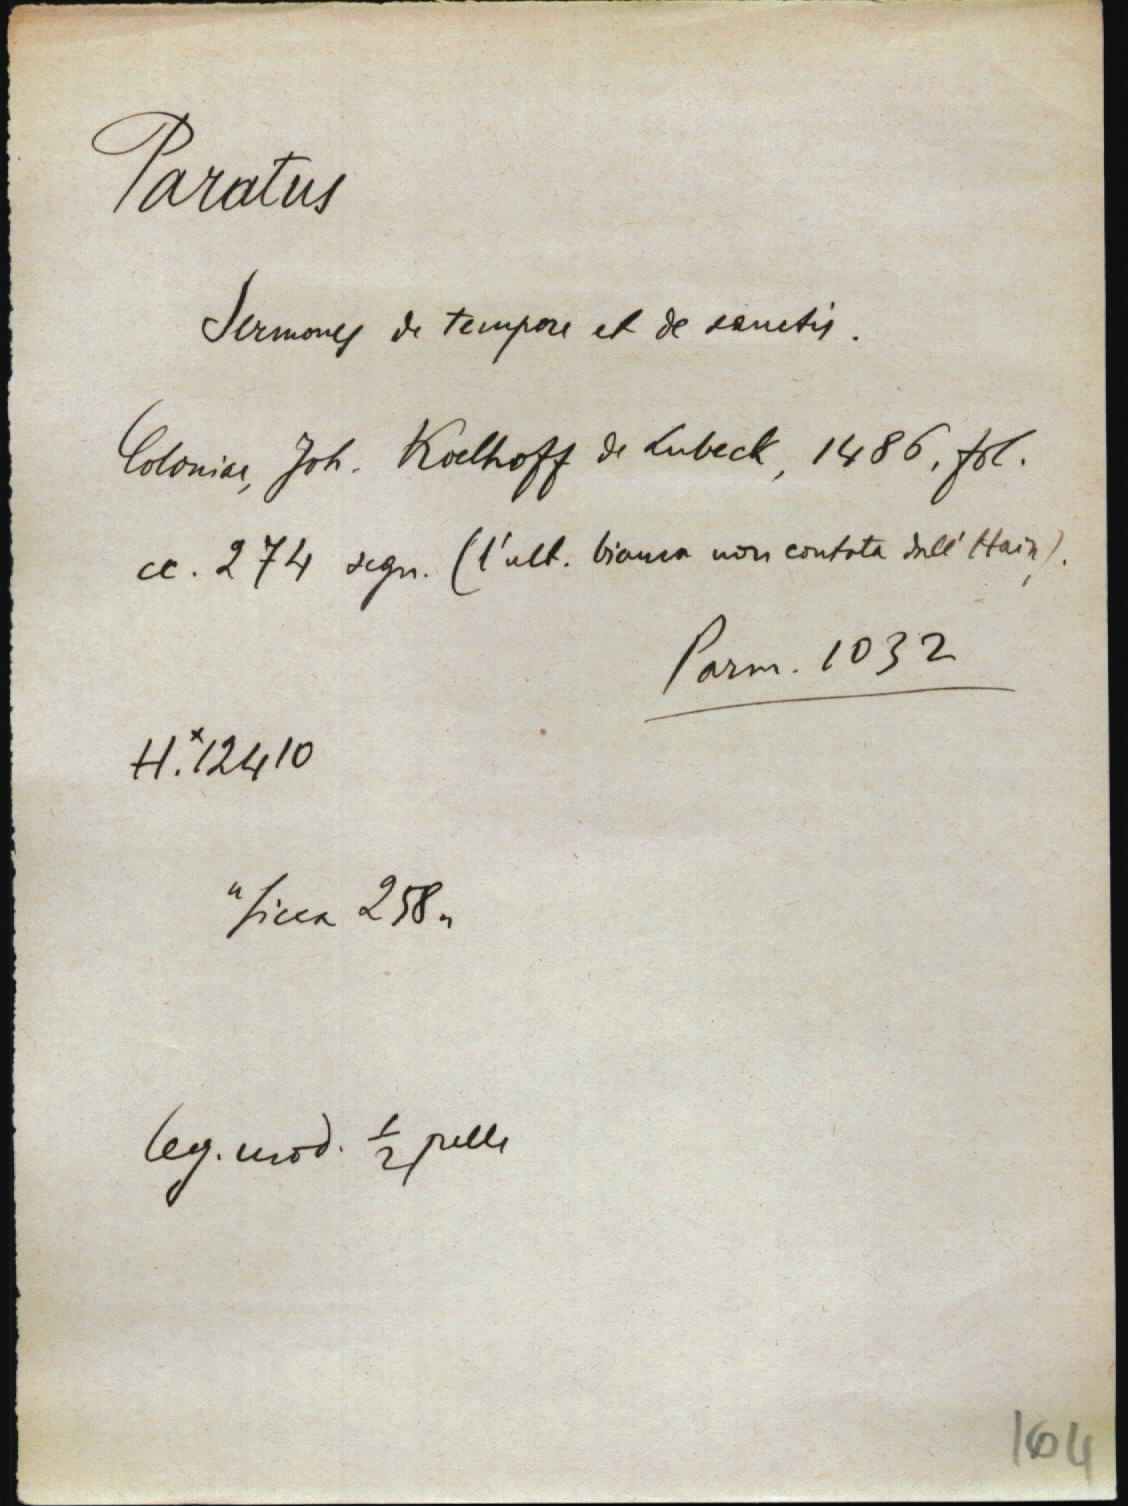 Paratus
Sermones de tempore et de sanctis.
Coloniae, Joh. Koelhoff de Lubeck, 1486, fol.
cc. 274 segn. (l'ult. bianca non contata dall'Hain).
Parm. 1032
H.*12410
"ficca 258"
leg. mod. ½ pelle
164